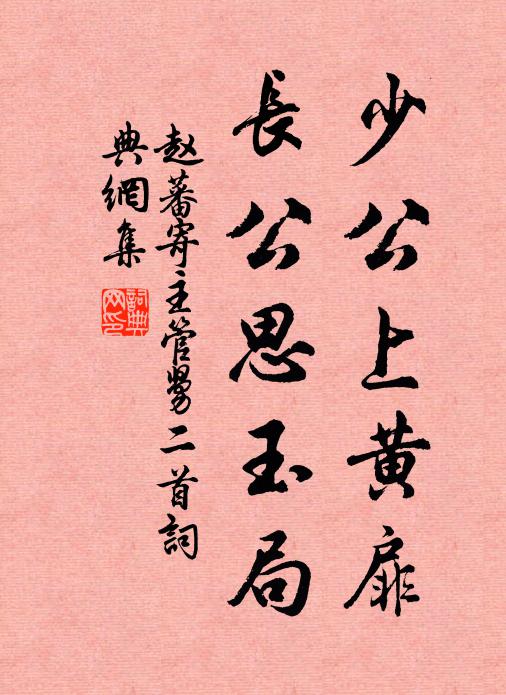 少公上黄扉
長公思玉局
赵蕃寄主管舅二首詞
典網集
詞典网印